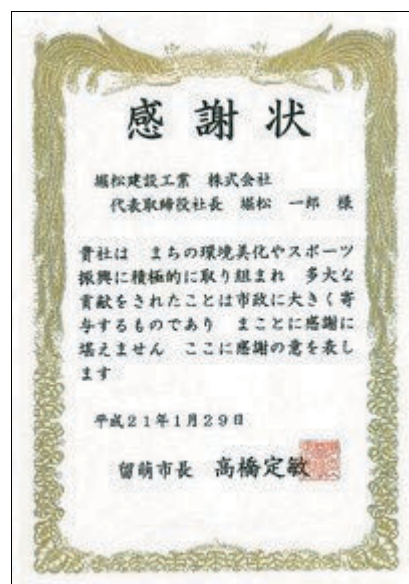 感謝状
堀松建設工業 株式会社
代表取締役社長 堀松 一郎 様
貴社は まちの環境美化やスポーツ
振興に積極的に取り組まれ 多大な
貢献をされたことは市政に大きく寄
与するものであり まことに感謝に
堪えません ここに感謝の意を表し
ます
平成21年1月29日
留萌市長 高橋定敏